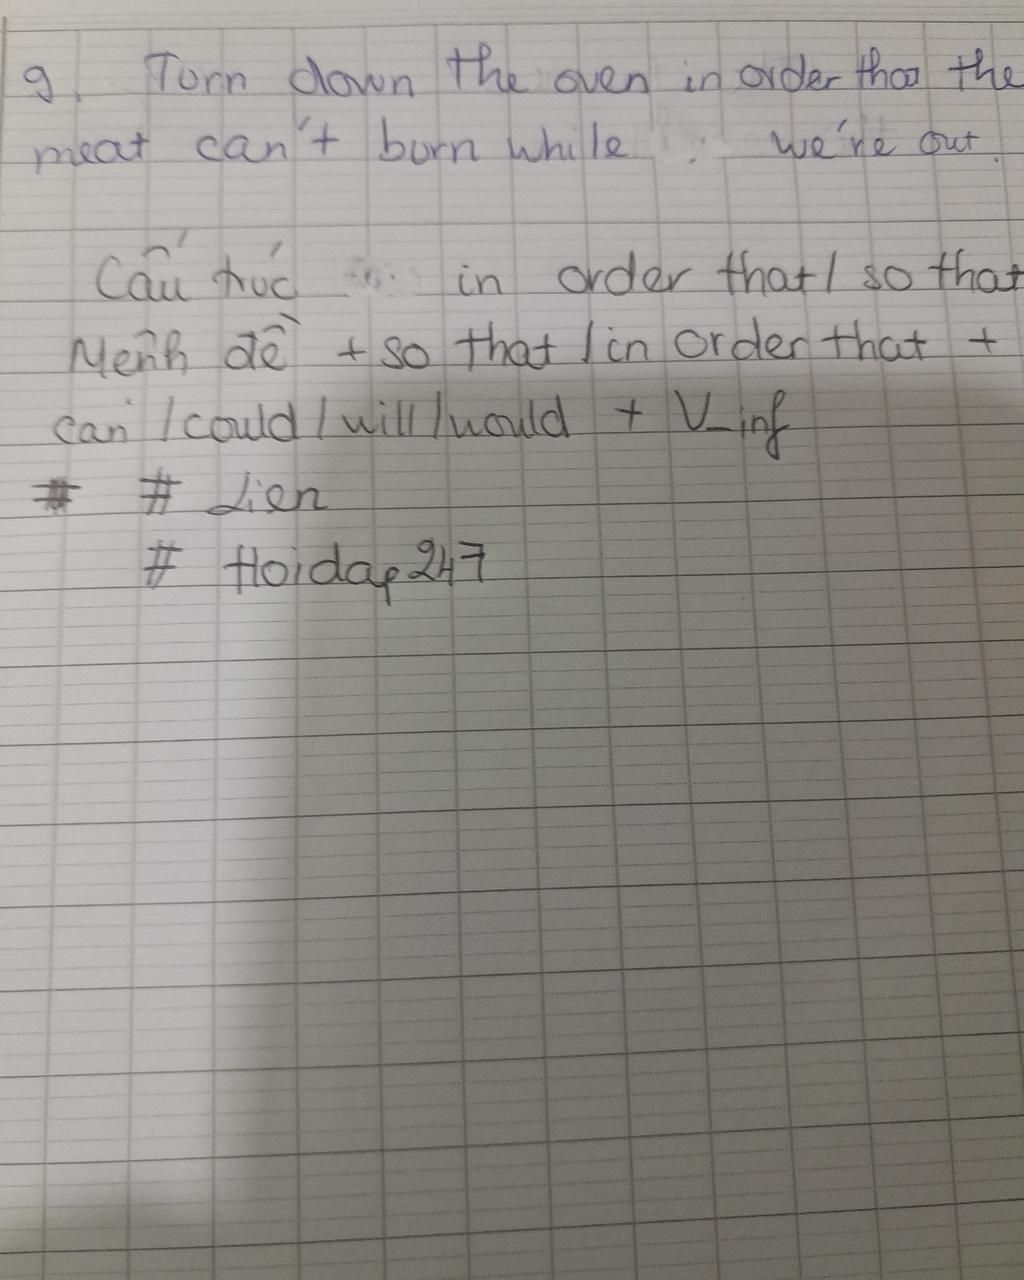 9. Turn down the oven in order that the
meat can't burn while we're out.
Cấu trúc in order that / so that
Mệnh đề + so that / in order that +
can / could / will / would + V_inf
# # Lien
# Hoidap247